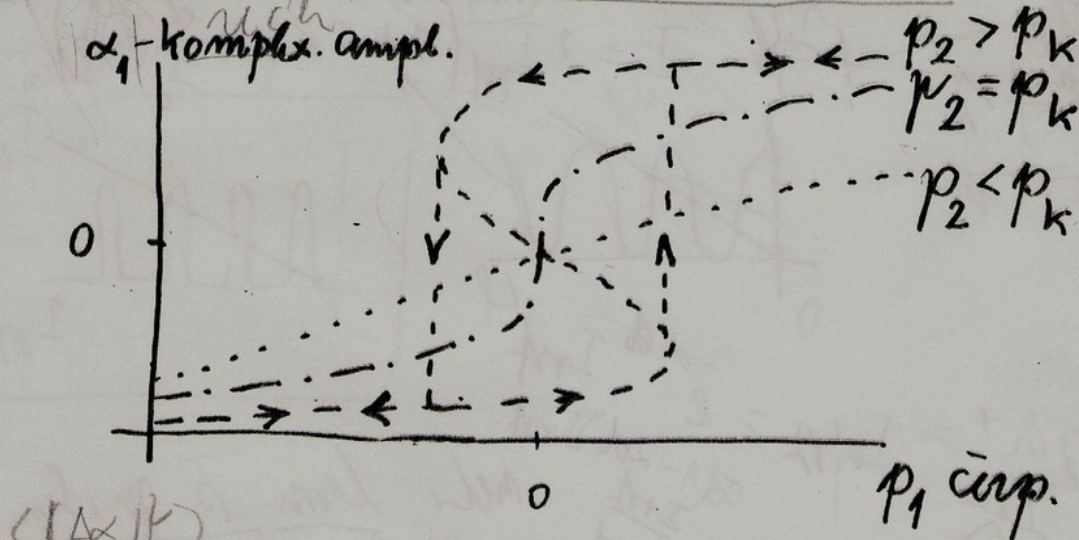 α₁-komplex. ampl.
p₂ > pₖ
p₂ = pₖ
p₂ < pₖ
0
0
p₁ čerp.